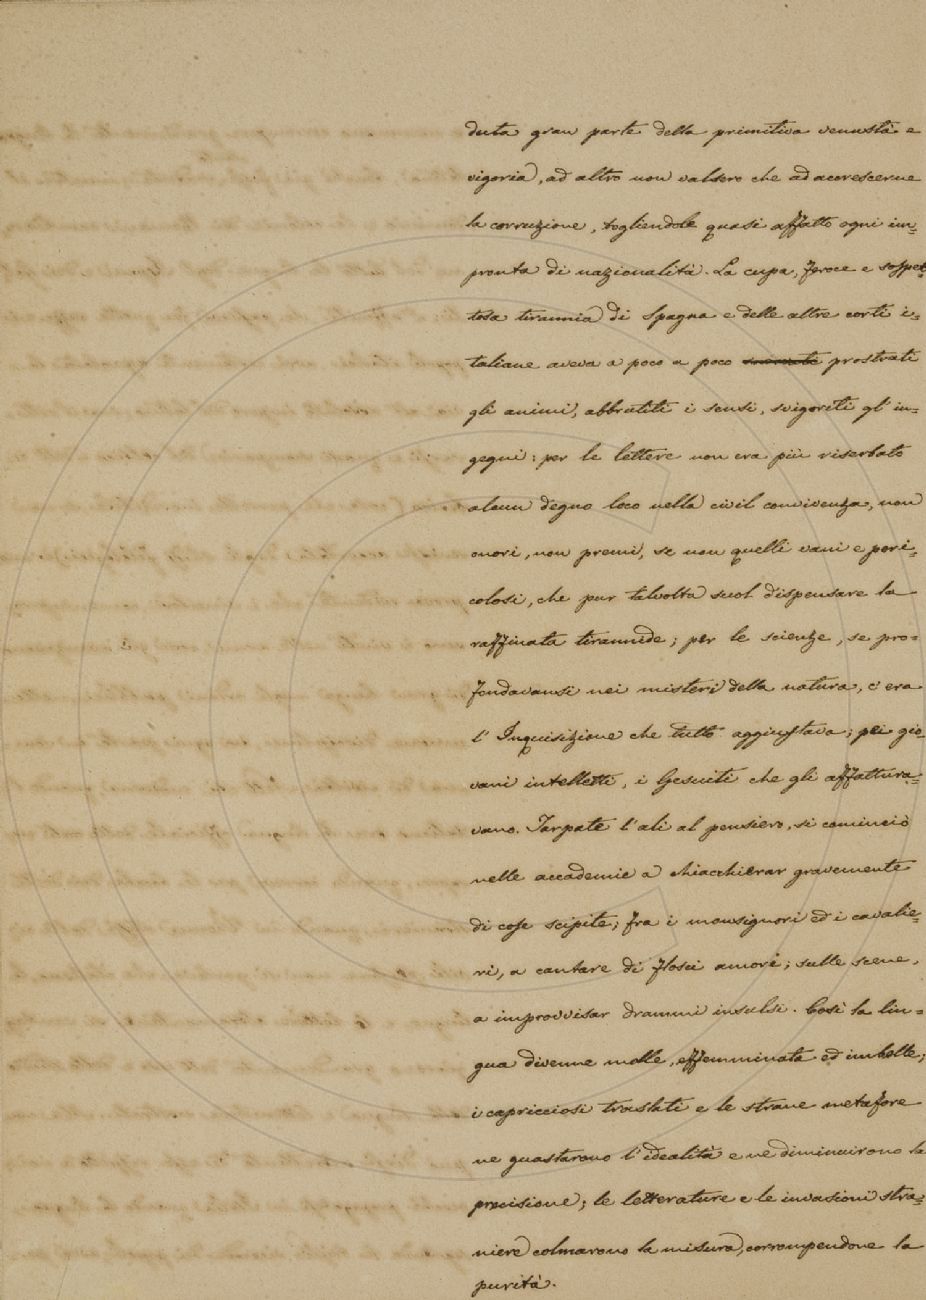 duta gran parte della primitiva venustà e
vigoria, ad altro non valsero che ad accrescerne
la corruzione, togliendole quasi affatto ogni im=
pronta di nazionalità. La cupa, feroce e sospet=
tosa tirannia di Spagna e delle altre corti i=
taliane aveva a poco a poco prostrati
gli animi, abbrutiti i sensi, svigoriti gl'in=
gegni: per le lettere non era più riserbato
alcun degno loco nella civil convivenza, non
onori, non premi, se non quelli vani e peri=
colosi, che pur talvolta suol dispensare la
raffinata tirannide; per le scienze, se pro=
fondavansi nei misteri della natura, c'era
l'Inquisizione che tutto aggiustava; pei gio=
vani intelletti, i Gesuiti che gli affattura=
vano. Tarpate l'ali al pensiero, si cominciò
nelle accademie a chiacchierar gravemente
di cose scipite; fra i monsignori ed i cavalie=
ri, a cantare di flosci amori; sulle scene,
a improvvisar drammi insulsi. Così la lin=
gua divenne molle, effemminata ed imbelle;
i capricciosi traslati e le strane metafore
ne guastarono l'idealità e ne diminuirono la
precisione; le letterature e le invasioni stra=
niere colmarono la misura, corrompendone la
purità.